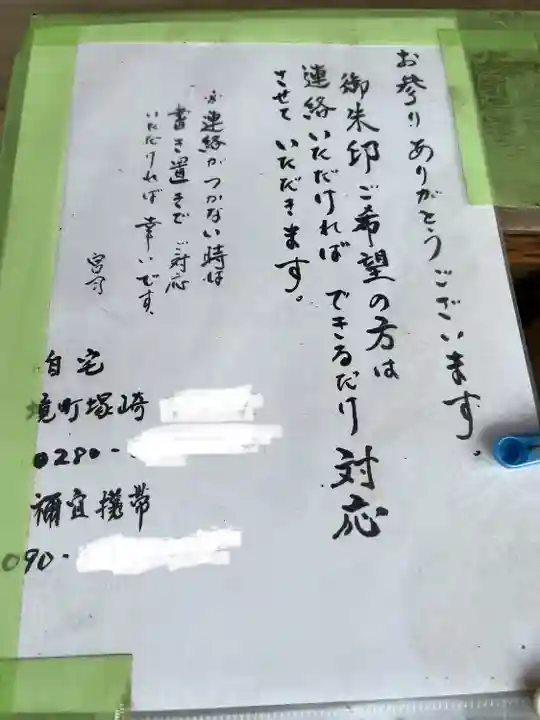 お参りありがとうございます。
御朱印ご希望の方は
連絡いただければ できるだけ 対応
させて いただきます。
※連絡がつかない時は
書き置きで ご対応
いただければ 幸いです。
宮司
自宅
境町塚崎
0280-
禰宜携帯
090-